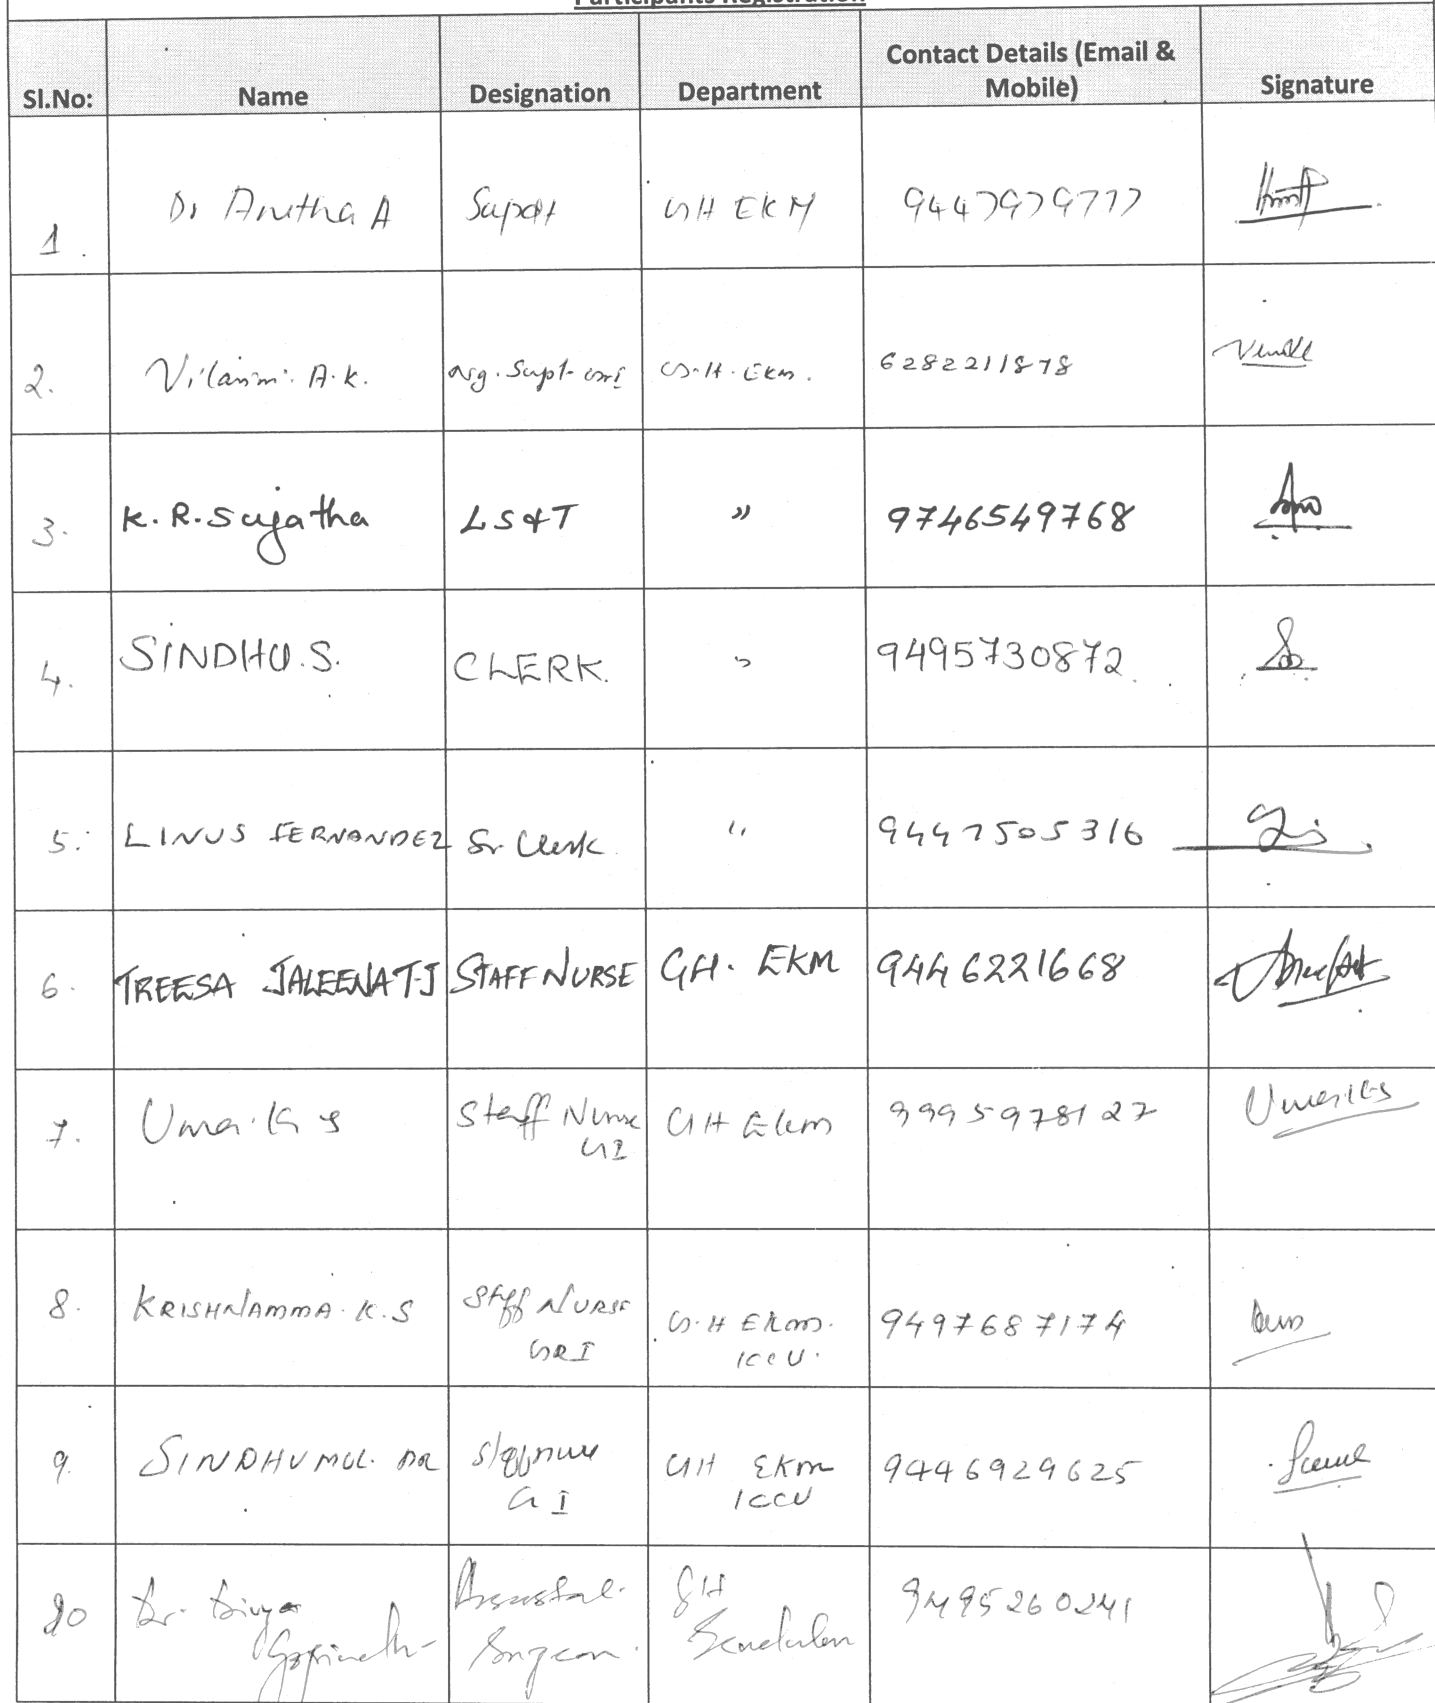 Participants Registration
Sl.No: Name Designation Department Contact Details (Email & Mobile) Signature
1. Dr Anitha A Supdt GH EKM 9447979777
2. A.K. Ng. Supt. GrI G.H. Ekm. 6282211878
3. K.R. Sujatha LS&T " 9746549768
4. SINDHU.S. CLERK. " 9495730872
5. LINUS FERNANDEZ Sr. Clerk " 9447505316
6. TREESA JALEENA T.J STAFF NURSE GH. EKM 9446221668
7. Uma.K S Staff Nurse GI GH Ekm 9995978127 Uma.K.S
8. KRISHNAMMA.K.S Staff NURSE GRI G.H Ekm. ICCU. 9497687174
9. SINDHUMOL. Staff nurse GI GH EKM ICCU 9446929625
10 Dr. Divya Gopinath Assistant Surgeon. GH Ernakulam 9495260241